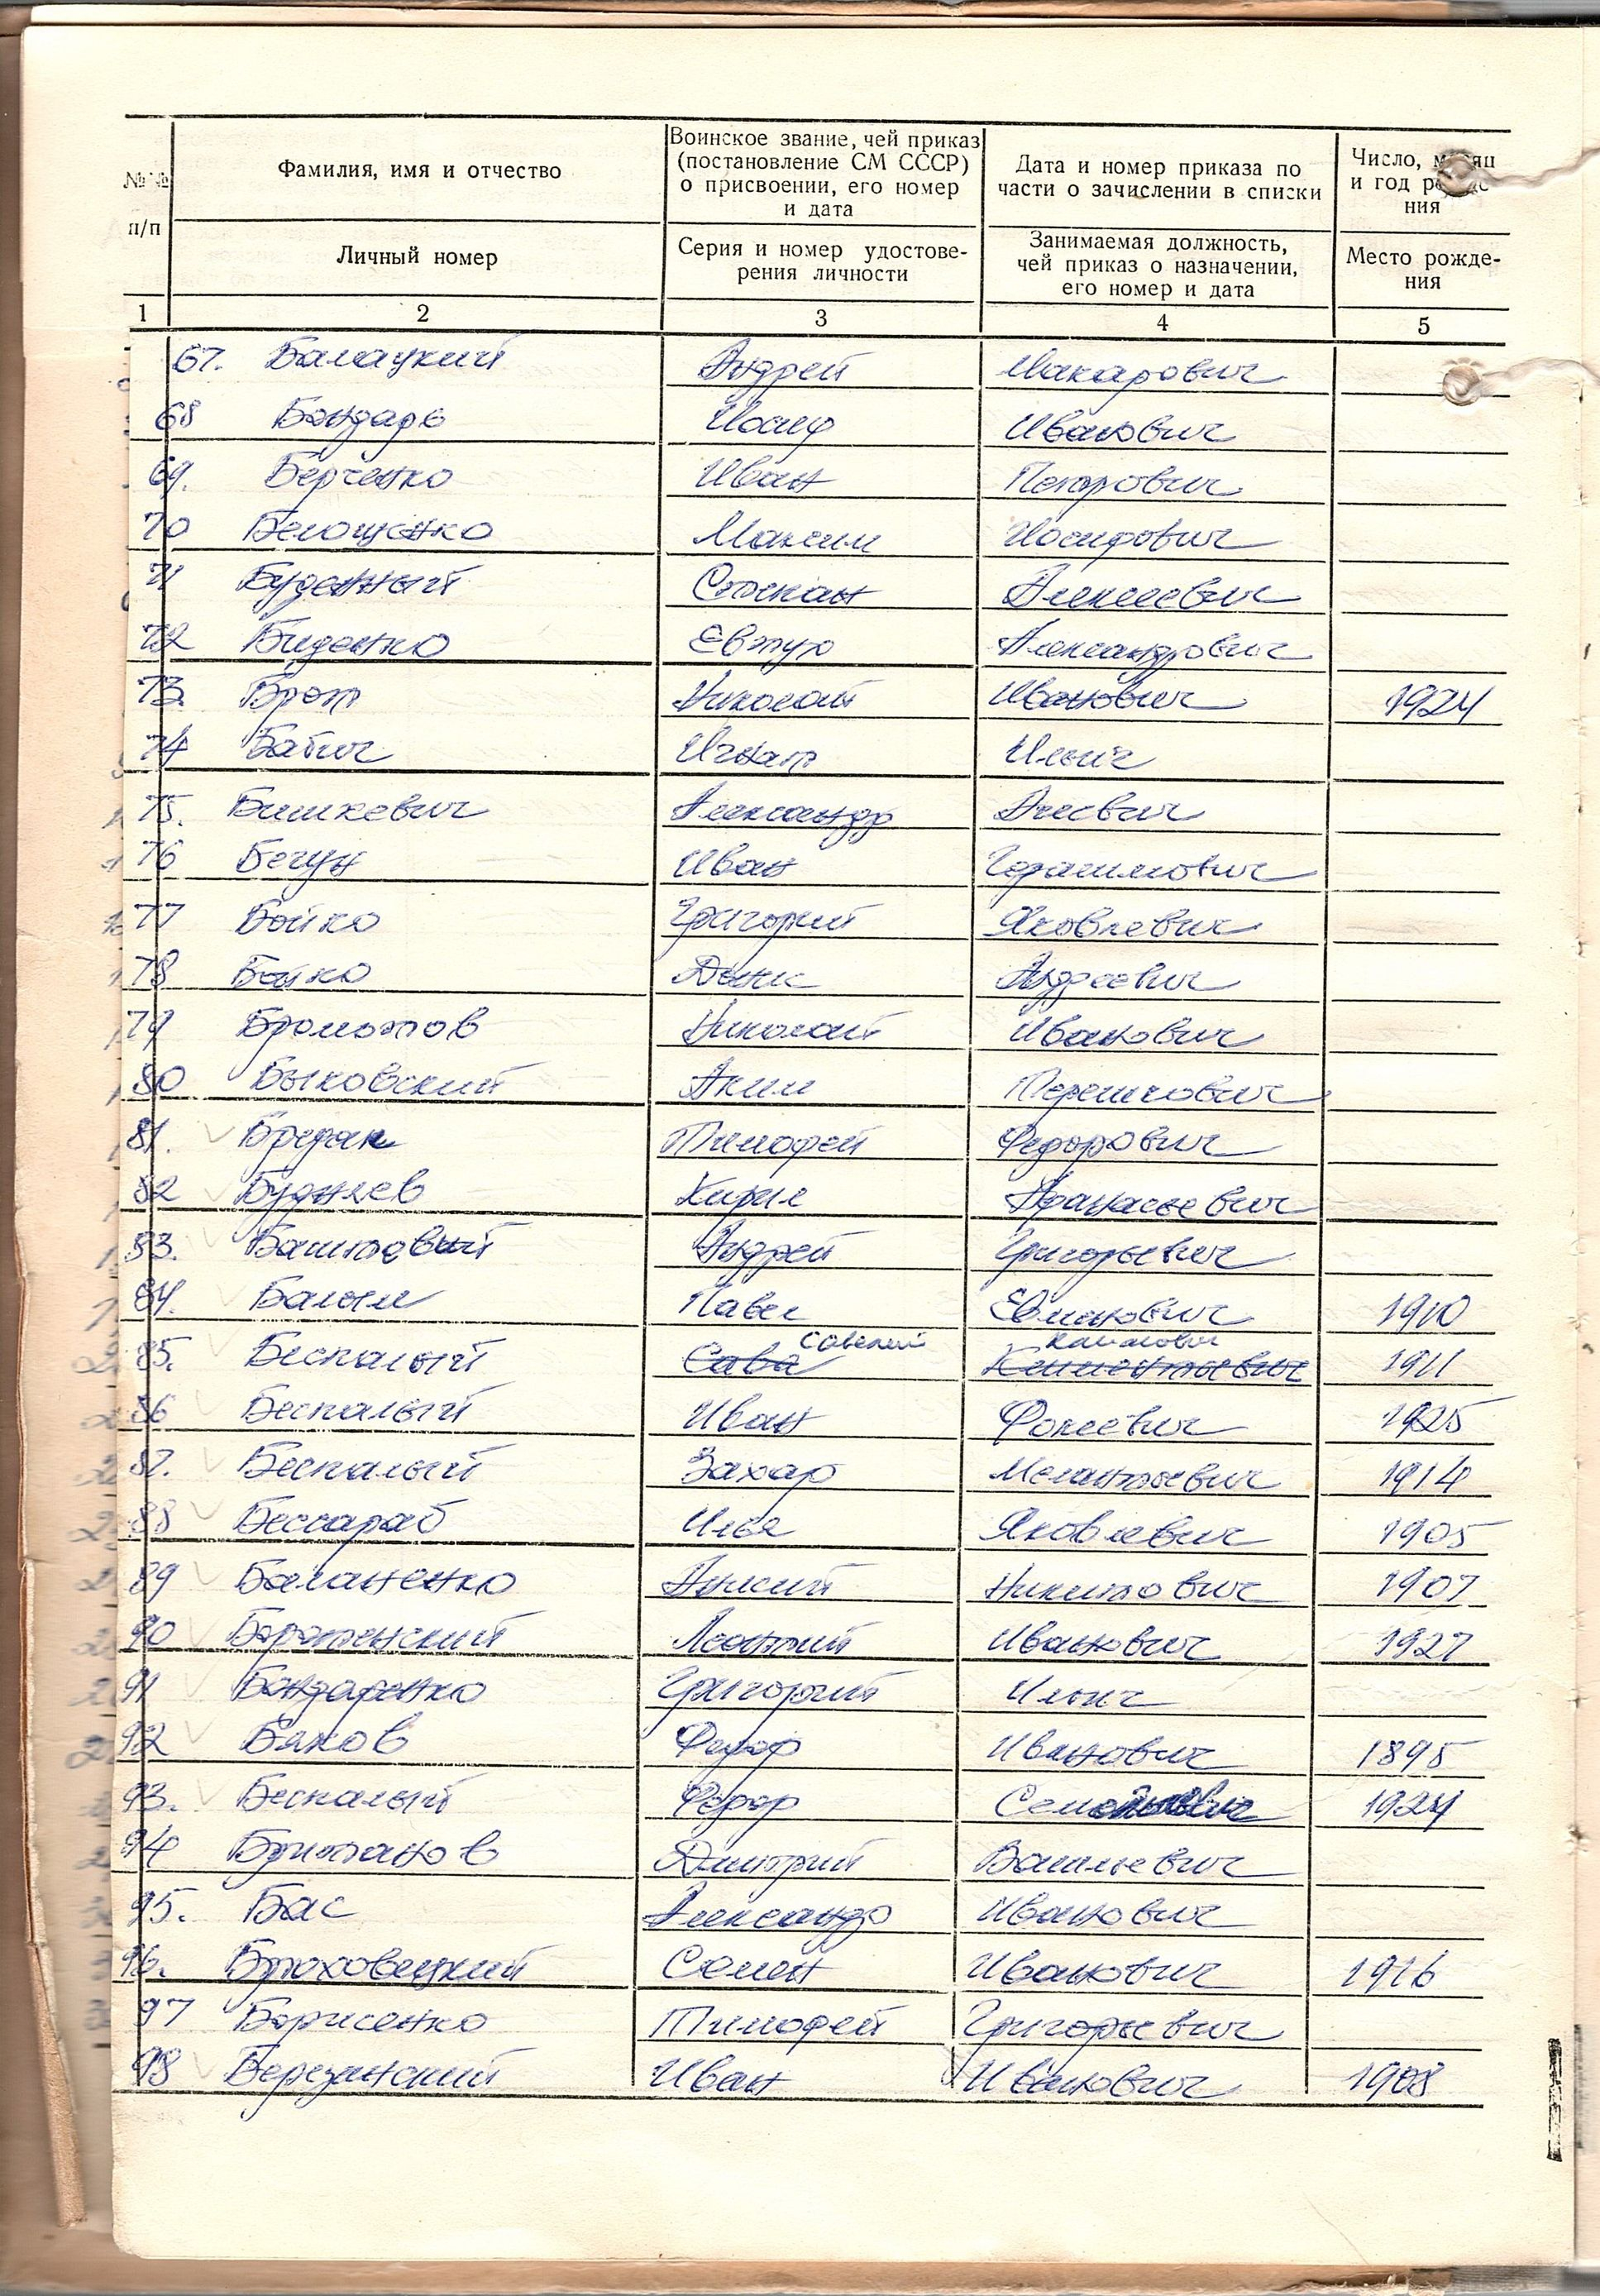 №№ п/п
Фамилия, имя и отчество
Воинское звание, чей приказ (постановление СМ СССР) о присвоении, его номер и дата
Дата и номер приказа по части о зачислении в списки
Число, и год ния
Личный номер
Серия и номер удостове-
рения личности
Занимаемая должность,
чей приказ о назначении,
его номер и дата
Место рожде-
ния
1 2 3 4 5
67. Балацкий Андрей Макарович
68 Бондарь Иосиф Иванович
69. Берченко Иван Петрович
70 Белощенко Максим Иосифович
71 Буденный Степан Алексеевич
72 Биденко Евтух Александрович
73. Брот Николай Иванович 1924
74 Бабич Игнат Ильич
75. Бишкевич Александр
76 Бегун Иван Герасимович
77 Бойко Григорий Яковлевич
78 Бойко Денис Андреевич
79 Бромотов Николай Иванович
80 Быковский Аким
81. Тимофей Федорович
82 Буднев Кирил Афанасьевич
83. Баштовый Андрей Григорьевич
84. Балым Павел 1910
85. Беспалый Сава Савелий Климентьевич 1911
86 Беспалый Иван Фокеевич 1925
87. Беспалый Захар Мелантьевич 1914
88 Бессараб Илья Яковлевич 1905
89 Баланенко Никитович 1907
90 Леонтий Иванович 1927
91 Бондаренко Григорий Ильич
92 Бяков Федор Иванович 1895
93. Беспалый Федор 1924
94 Британов Дмитрий Васильевич
95. Бас Александр Иванович
96. Брюховецкий Семен Иванович 1916
97 Борисенко Тимофей Григорьевич
98 Березанский Иван Иванович 1908